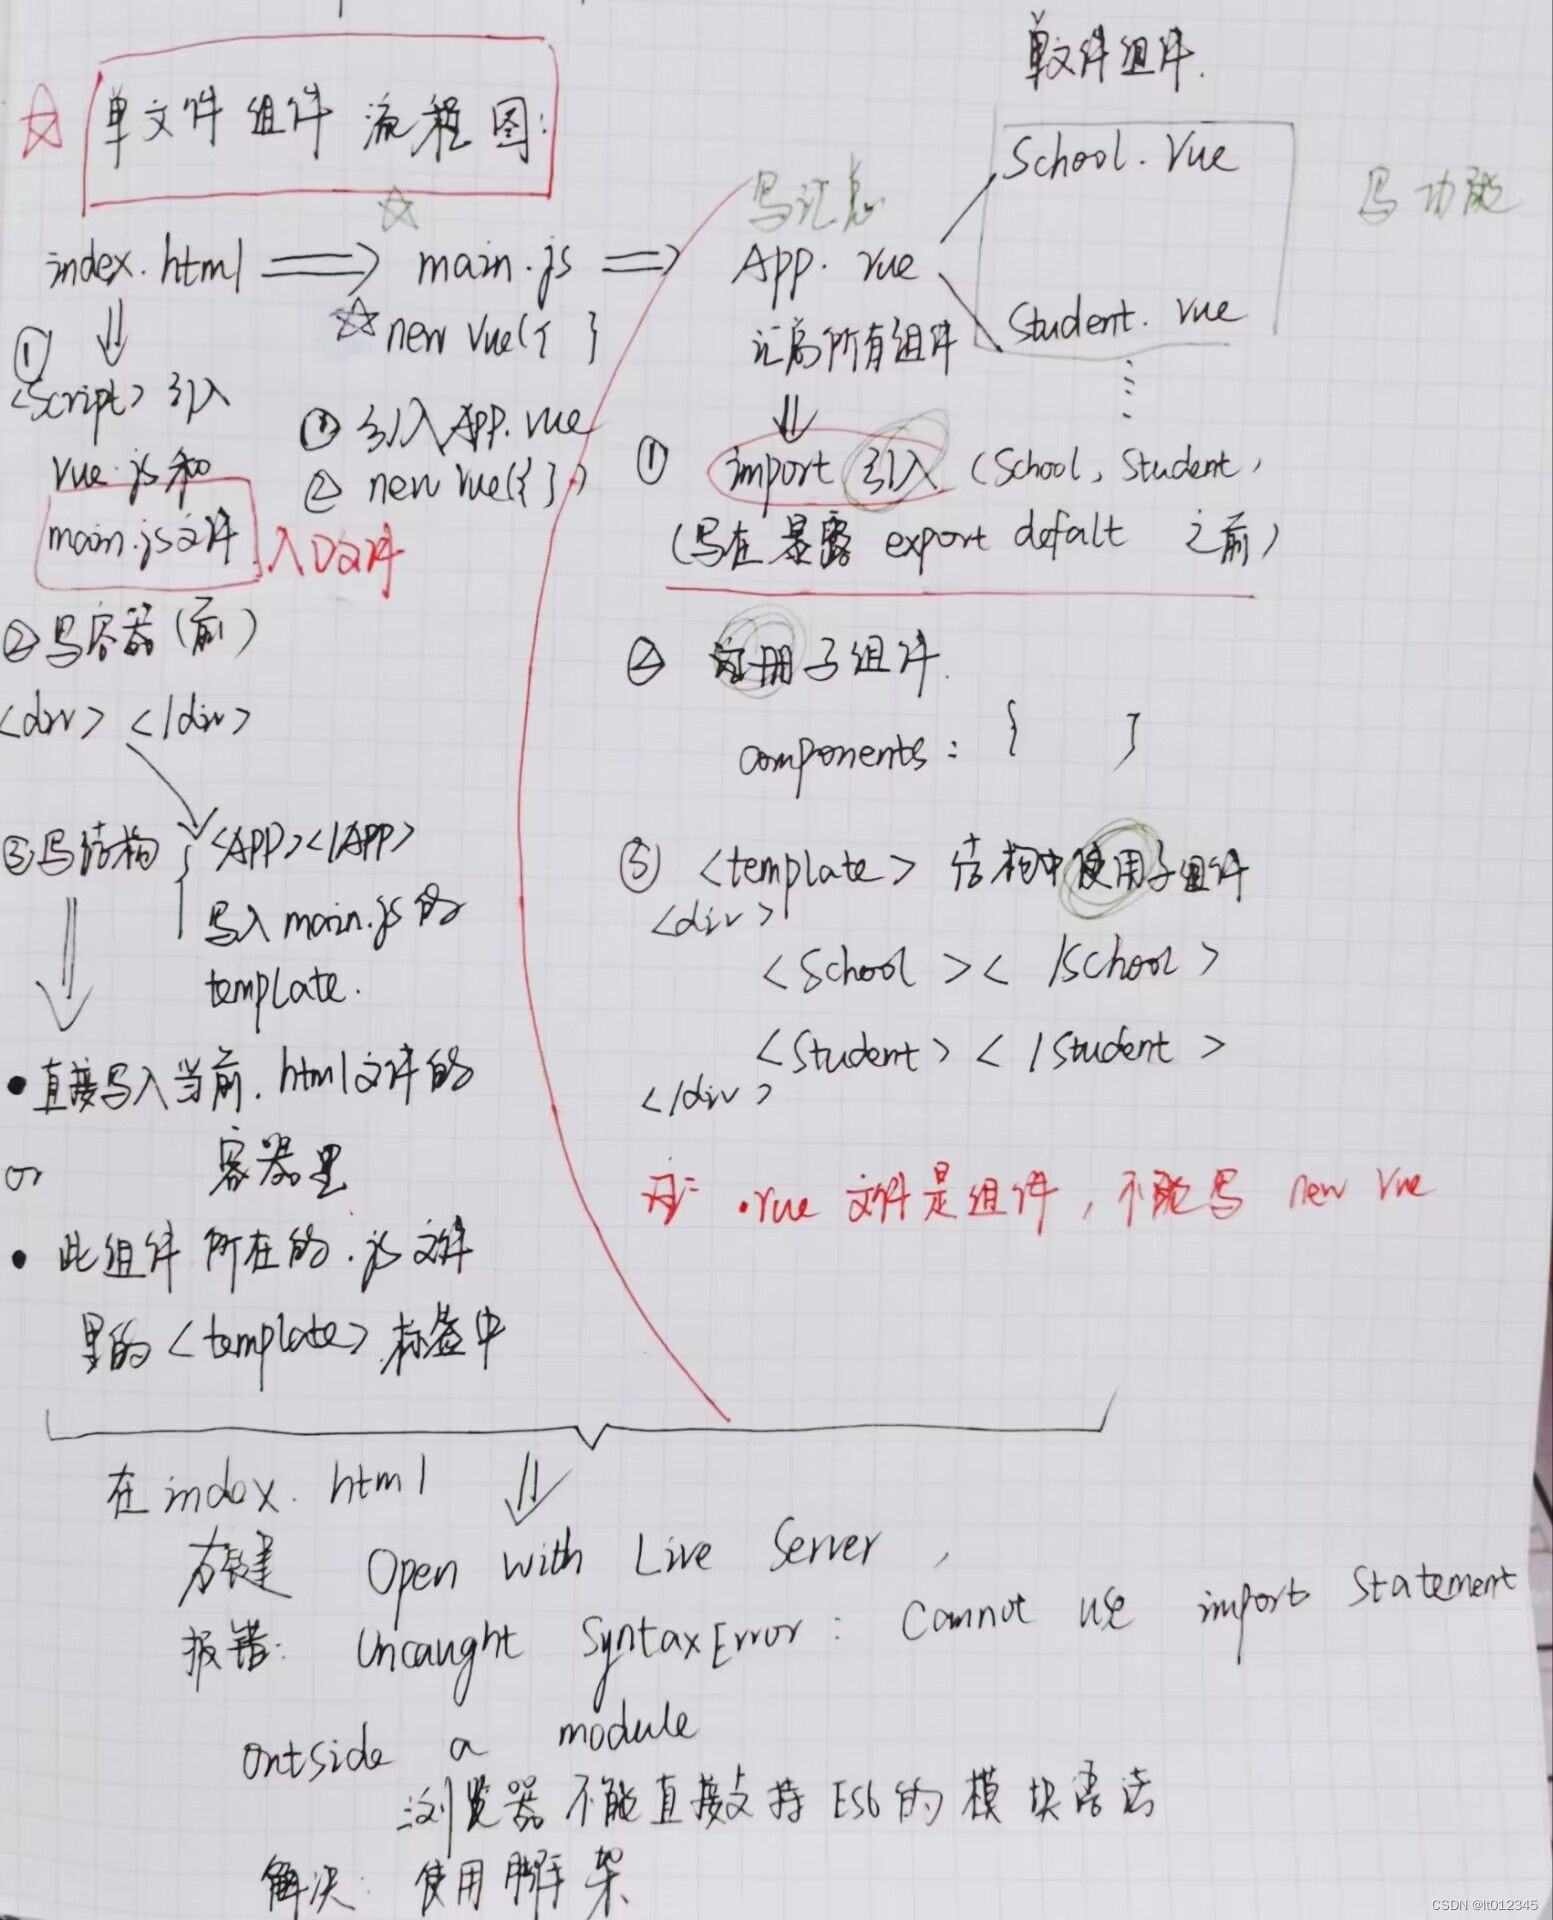 单文件组件流程图:
index.html ⇒ main.js ⇒
new Vue({ }
①
<script> 引入
vue.js和
main.js文件
入口文件
① 引入App.vue
② new Vue({ })
②写容器(前)
<div> </div>
③写结构 { <APP></APP>
写入main.js的
template.
• 直接写入当前.html文件的
容器里
or
• 此组件所在的.js文件
里的<template>标签中
单文件组件.
写汇总
School.vue
写功能
App.vue
Student.vue
汇总所有组件
① import 引入 (School, Student,
(写在暴露 export defalt 之前)
② 注册子组件.
components: { }
③ <template> 结构中使用子组件
<div>
<School></School>
<Student></Student>
</div>
注: .vue 文件是组件, 不能写 new Vue
在index.html
右键 Open with Live Server,
报错: Uncaught SyntaxError: Cannot use import statement
outside a module
∴浏览器不能直接支持ES6的模块语法
解决: 使用脚手架
CSDN @lt012345